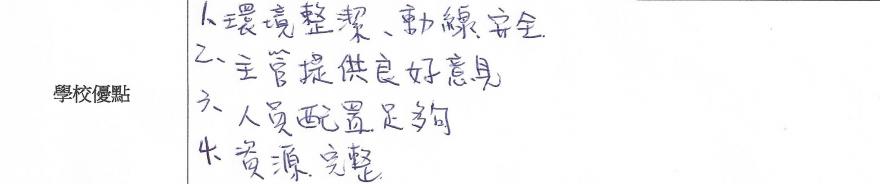 1、環境整潔、動線安全.
2、主管提供良好意見
學校優點
3、人員配置足夠
4、資源完整